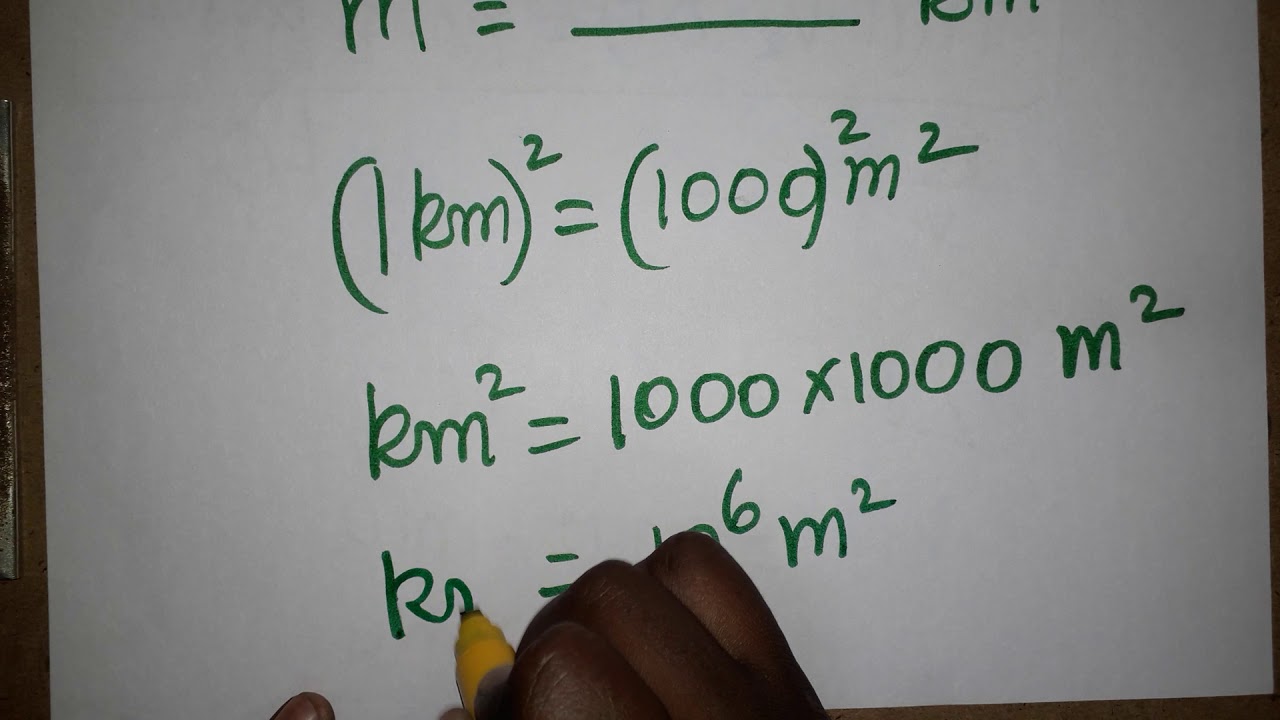 m = ______ km
(1 km)² = (1000)² m²
km² = 1000 × 1000 m²
k = 10⁶ m²